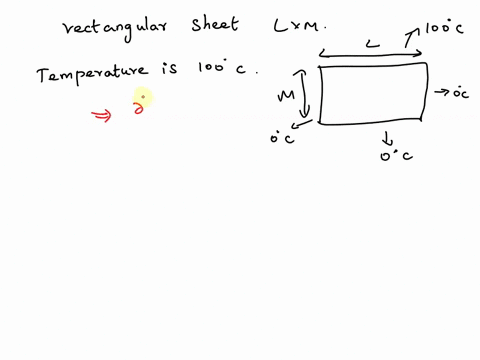 rectangular sheet L×M.
Temperature is 100°C.
⇒ ∂
L
100°C
M
→ 0°C
0°C
0°C